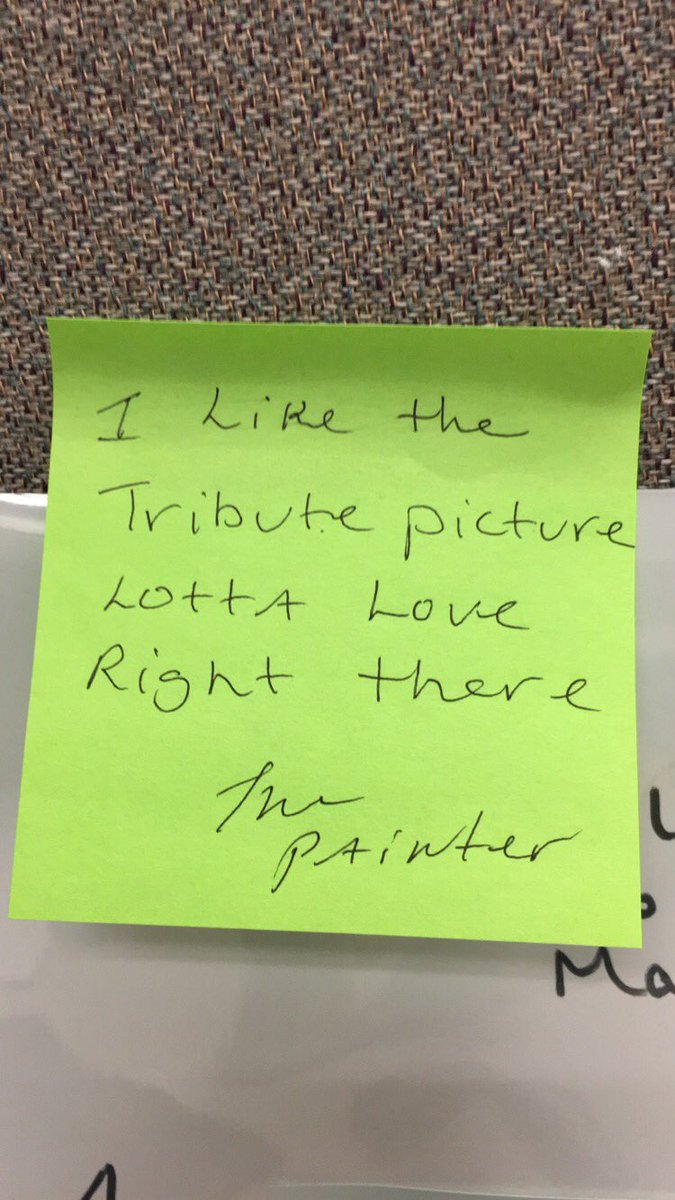 I Like the
Tribute picture
Lotta Love
Right there
The
Painter
Ma